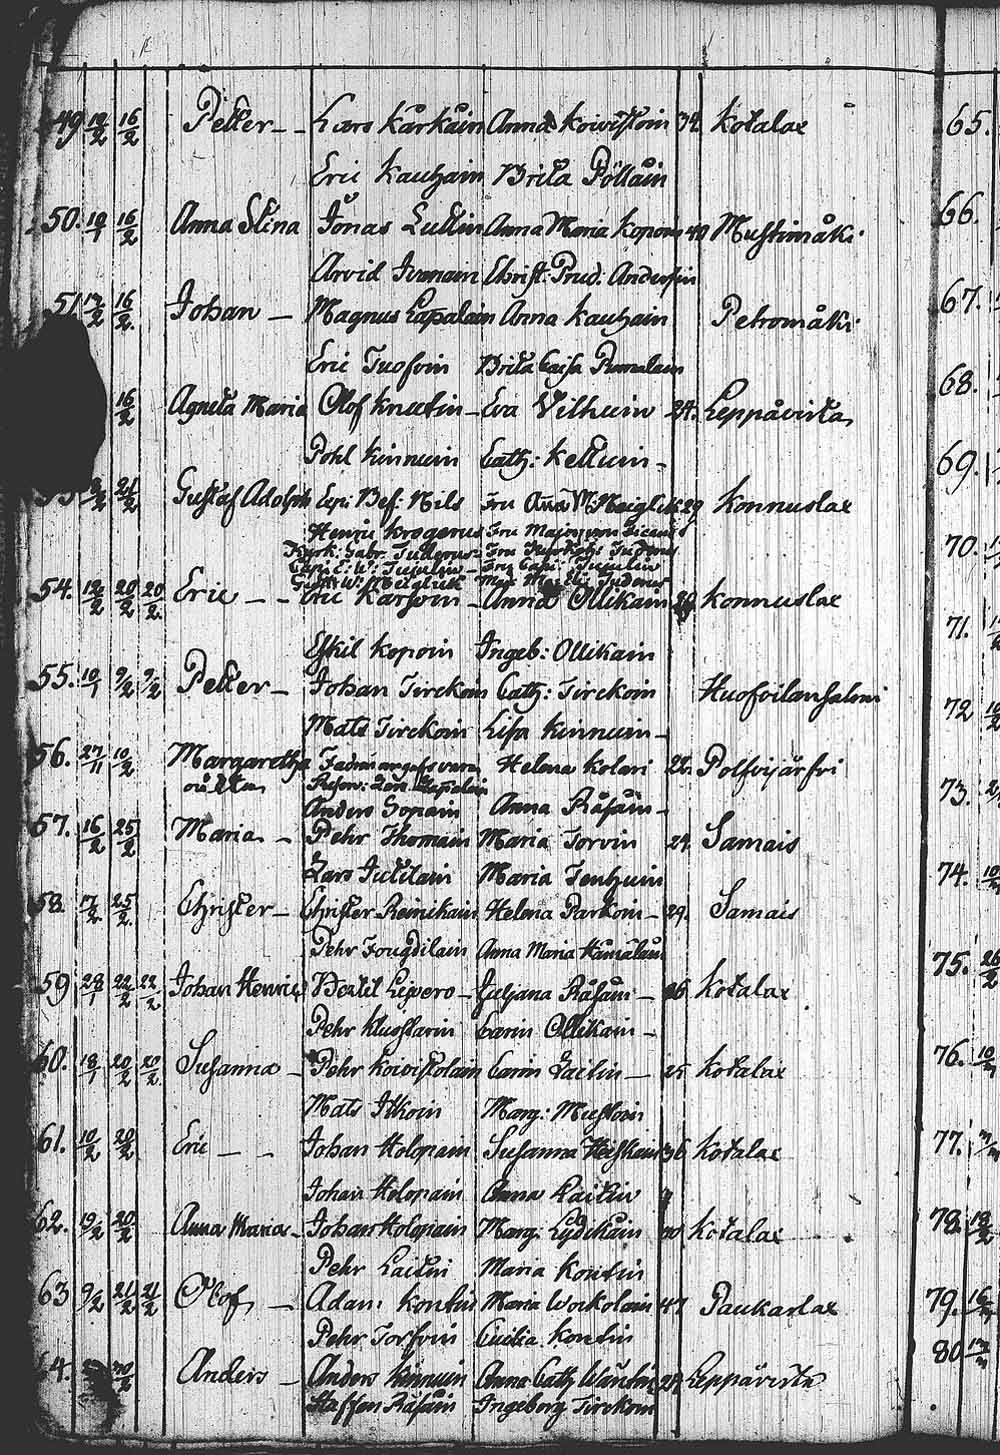 49 12/2 16/2 Petter Lars Kårkåin Anna Koivistoin 34 Kotalax
Eric Kauhain Brita Pöllåin
50. 19/1 16/2 Anna Stina Jonas Lullin Anna Maria Kopoin 40 Mustimåki
Arvid Ivanain Christ: Prud. Andersin
51 12/2 16/2 Johan Magnus Lapalain Anna Kauhain Petromåki
Eric Tuofvin Brita Caisa
16/2 Agneta Maria Olof Knutin Eva Vilhuin 24. Leppåvirta
Pohl Kinnuin Cath: Kettuin
21/2 Gustaf Adolph Exp: Bef: Nils Fru Anna M: Meiglick 29 Konnuslax
Henric Krogerus Fru
Kyrk: Gabr. Tuderus Fru Tuderus
Fru Capi:
Tuderus
54. 12/2 20/2 20/2 Eric Eric Karfvin Anna Ollikain 30 Konnuslax
Eskil Kopoin Ingeb: Ollikain
55. 10/1 9/2 9/2 Petter Johan Tirckoin Cath: Tirckoin
Mats Tirckoin Lisa Kinnuin
56. 27/11 10/2 Margaretha Fadren angifs vara Helena Kolari 22. Polfvijärfvi
oäkta
Anders Sopain Anna Råsåin
57. 16/2 25/2 Maria Pehr Thomain Maria Torvin 24 Samais
Lars Tuttilain Maria Tenhuin
58. 17/2 25/2 Christer Christer Reinikain Helena Parkoin 29. Samais
Pehr Fougdilain Anna Maria Håmålåin
59 28/1 22/2 22/2 Johan Henric Bertil Lipvero Juliana Råsåin 26 Kotalax
Pehr Carin Ollikain
60. 18/1 20/2 20/2 Susanna Pehr Koivistolain Carin Laitin 25 Kotalax
Mats Itkoin Marg: Mustoin
61. 10/2 20/2 Eric Johan Holopain Susanna Heiskain 36 Kotalax
Johan Holopain Anna Laitin
62. 19/2 20/2 Anna Maria Johan Holopain Marg: Lydikåin 30 Kotalax
Pehr Laitin Maria Kontin
63 9/2 21/2 21/2 Olof Adam Kontin Maria Workolain 47 Paukarlax
Pehr Torfvin Cecilia Kontin
20/2 Anders Anders Kinnuin Anna Cath Leppåvirta
Staffan Råsåin Ingeborg Tirckoin
65.
66.
67.
68.
69.
70.
71.
72
73.
74.
75.
76.
77.
78.
79.
80